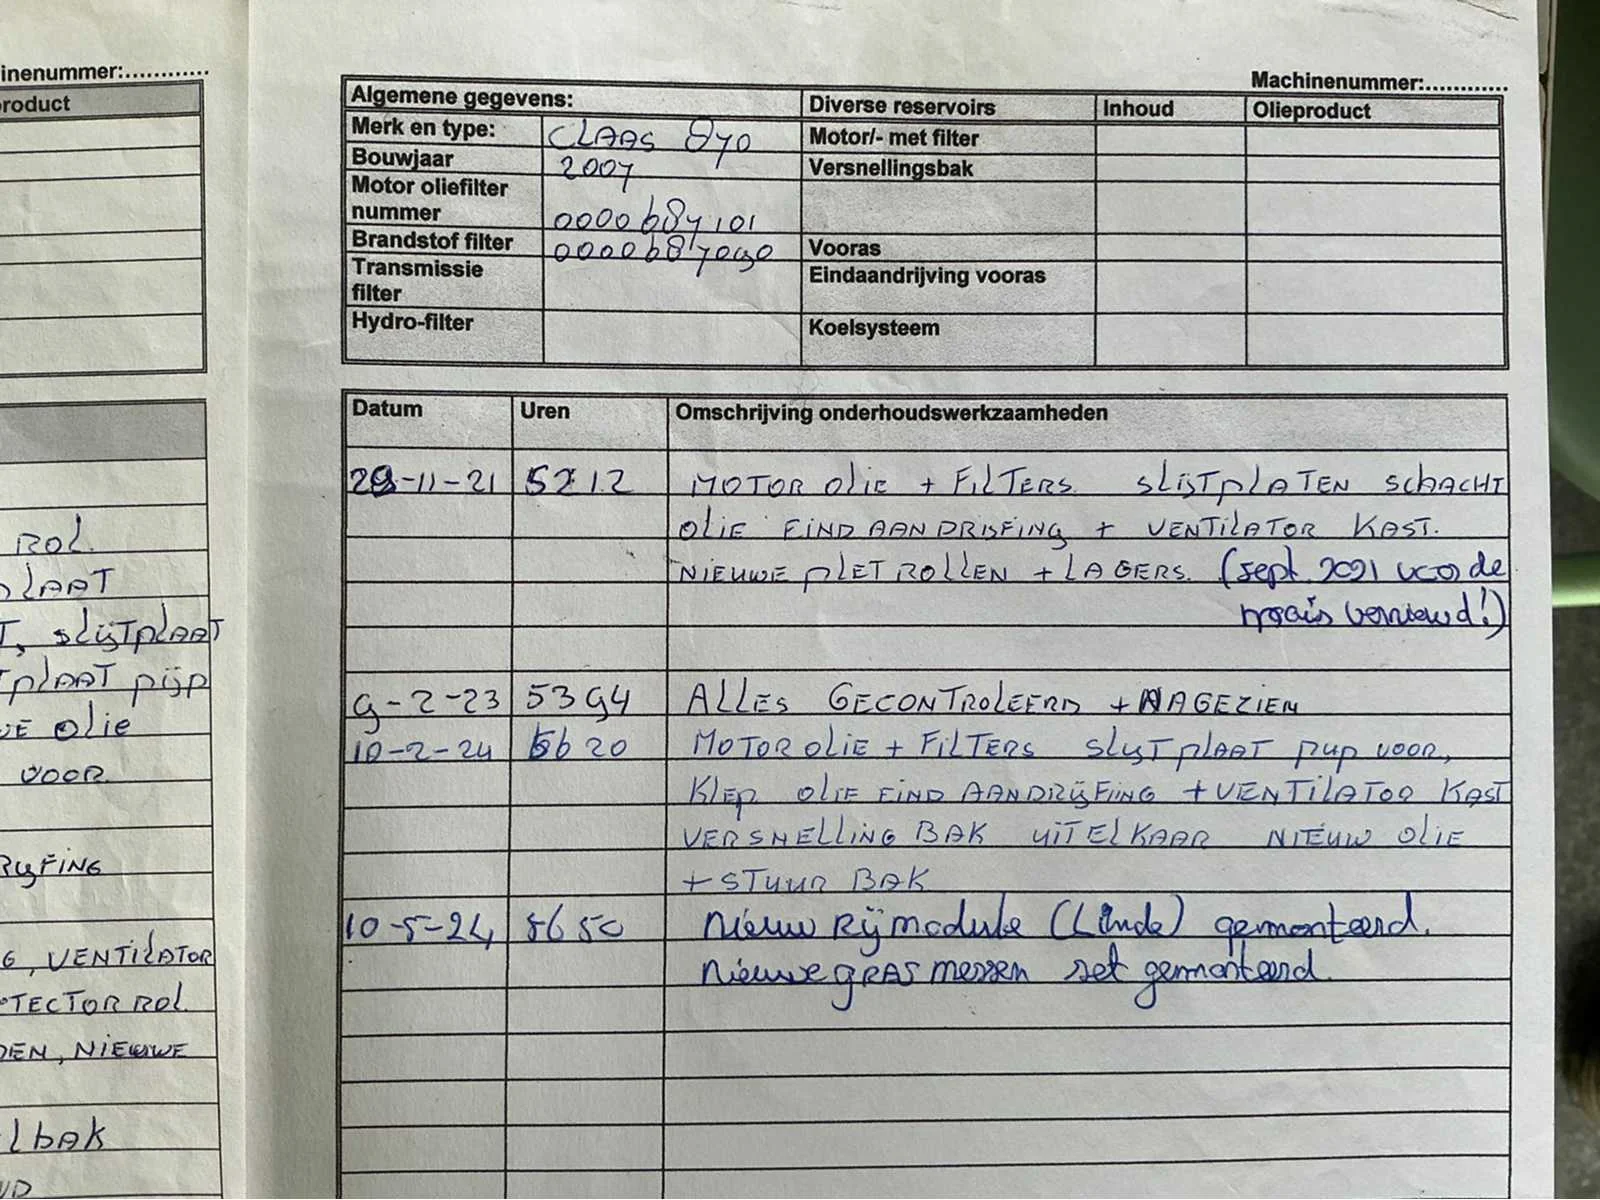 inenummer:............
roduct
ROL.
PLAAT
T, SLIJTPLAAT
TPLAAT PIJP
WE OLIE
VOOR
RIJFING
G, VENTILATOR
TECTOR ROL.
DEN, NIEUWE
LBAK
Machinenummer:............
Algemene gegevens: Diverse reservoirs Inhoud Olieproduct
Merk en type: CLAAS 870 Motor/- met filter
Bouwjaar 2007 Versnellingsbak
Motor oliefilter
nummer 0000687101
Brandstof filter 0000687090 Vooras
Transmissie
filter Eindaandrijving vooras
Hydro-filter Koelsysteem
Datum Uren Omschrijving onderhoudswerkzaamheden
29-11-21 5212 MOTOR OLIE + FILTERS. SLIJTPLATEN SCHACHT
OLIE EINDAANDRIJFING + VENTILATOR KAST.
NIEUWE PLETROLLEN + LAGERS. (sept. 2021 voor de
mais vernieuwd!)
9-2-23 5394 ALLES GECONTROLEERD + NAGEZIEN
10-2-24 5620 MOTOROLIE + FILTERS SLIJTPLAAT PIJP VOOR,
KLEP OLIE EINDAANDRIJFING + VENTILATOR KAST
VERSNELLING BAK UITELKAAR NIEUW OLIE
+ STUUR BAK
10-5-24 5650 Nieuw Rijmodule (Linde) gemonteerd.
nieuwe GRAS messen set gemonteerd.